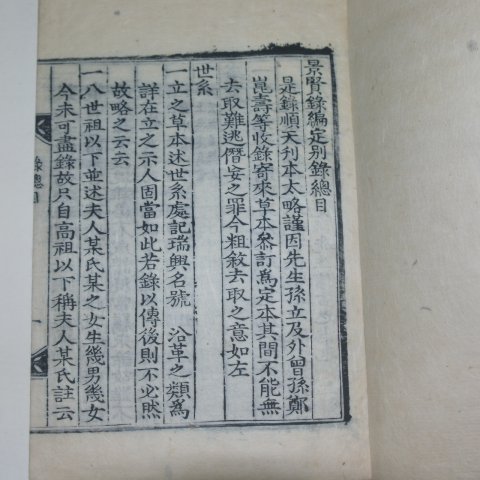 景賢錄編定別錄總目
是錄順天刋本太略謹因先生孫立及外曾孫鄭
崑壽等收錄寄來草本叅訂爲定本其間不能無
去取難逃僭妄之罪今粗敘去取之意如左
世系
立之草本述世系處記瑞興名號 沿革之類爲
詳在立之示人固當如此若錄以傳後則不必然
故略之云云
一八世祖以下並述夫人某氏某之女生幾男幾女
今未可盡錄故只自高祖以下稱夫人某氏註云
錄總目
一